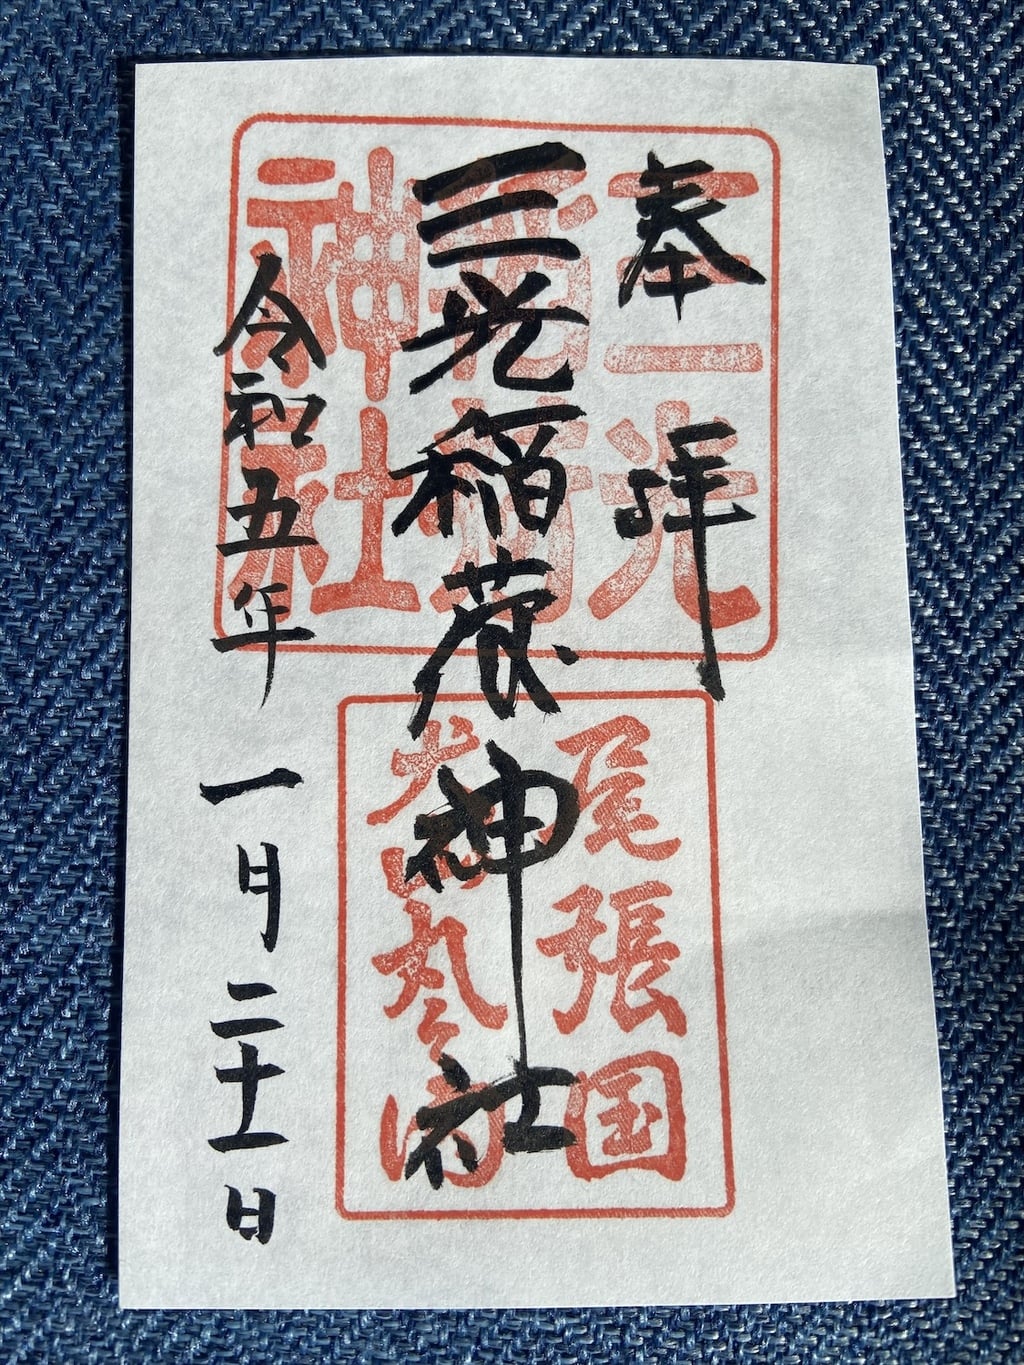 奉拝
三光稲荷神社
令和五年一月二十一日
三光
稲荷
神社
尾張国
犬山丸之内